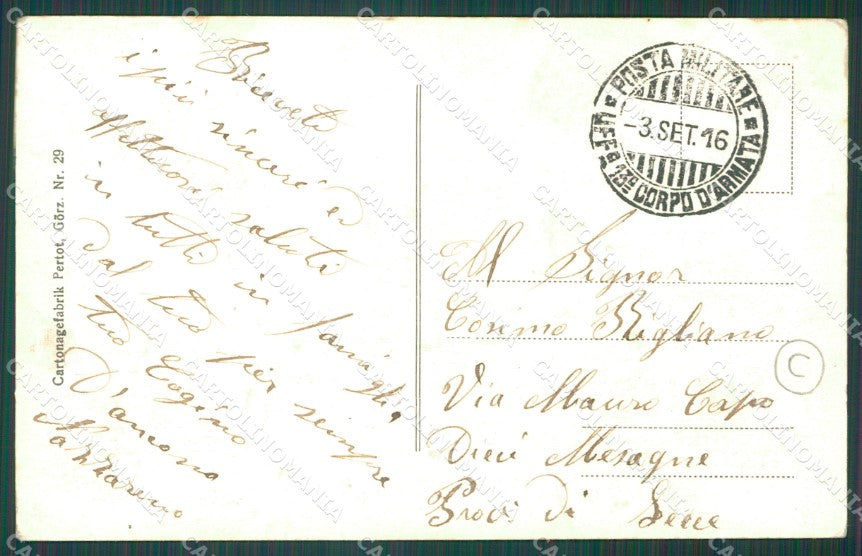 Ricevete
i più sinceri ed
affettuosi saluti
in tutti in famiglia
dal tuo per sempre
tuo Cogino
D'ancona
Nazzareno
Cartonagefabrik Pertot, Görz. Nr. 29
POSTA MILITARE
-3.SET.16
UFF 13º CORPO D'ARMATA
Al Signor
Cosimo Rigliano
Via Mauro Capo
Dieci Mesagne
Provi di Lecce
C
CARTOLINOMANIA